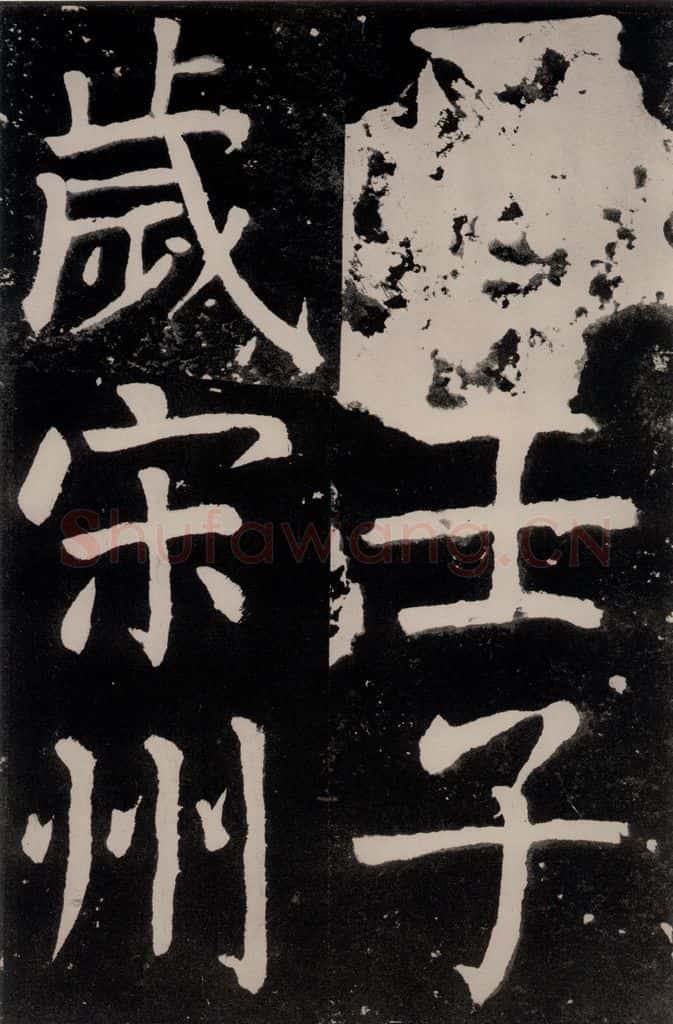 壬子
歲宋州
Shufawang.CN